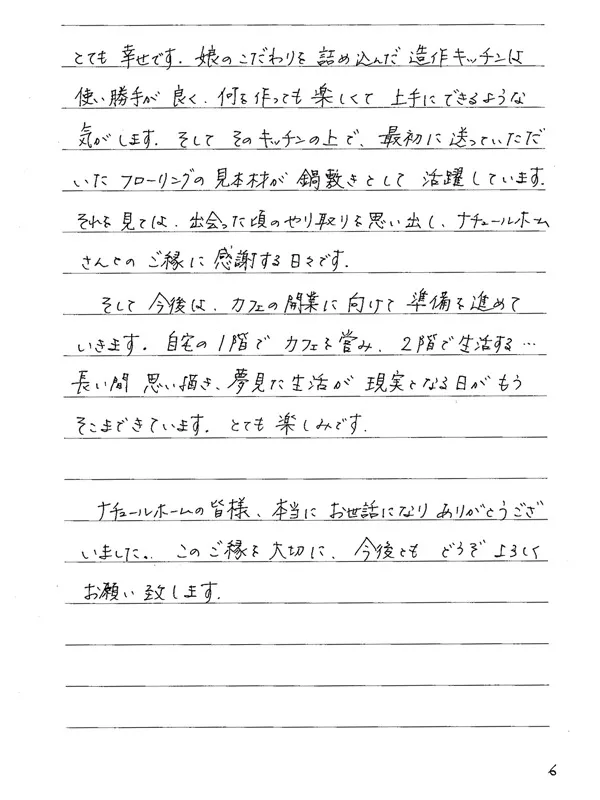 とても幸せです。娘のこだわりを詰め込んだ造作キッチンは
使い勝手が良く、何を作っても楽しくて上手にできるような
気がします。そしてそのキッチンの上で、最初に送っていただ
いたフローリングの見本材が鍋敷きとして活躍しています。
それを見ては、出会った頃のやり取りを思い出し、ナチュールホーム
さんとのご縁に感謝する日々です。
そして今後は、カフェの開業に向けて準備を進めて
いきます。自宅の1階でカフェを営み、2階で生活する…
長い間思い描き、夢見た生活が現実となる日がもう
そこまできています。とても楽しみです。
ナチュールホームの皆様、本当にお世話になりありがとうござ
いました。このご縁を大切に、今後ともどうぞよろしく
お願い致します。
6